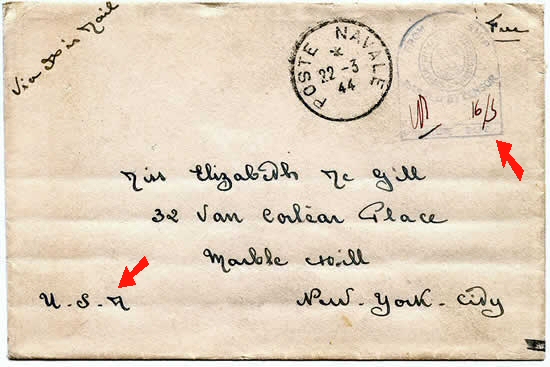 Via Air Mail
POSTE NAVALE
22-3
44
Free
CENSOR
16/3
Miss Elizabeth Mc Gill
32 Van Corlear Place
Marble Hill
U-S-A New-York-City